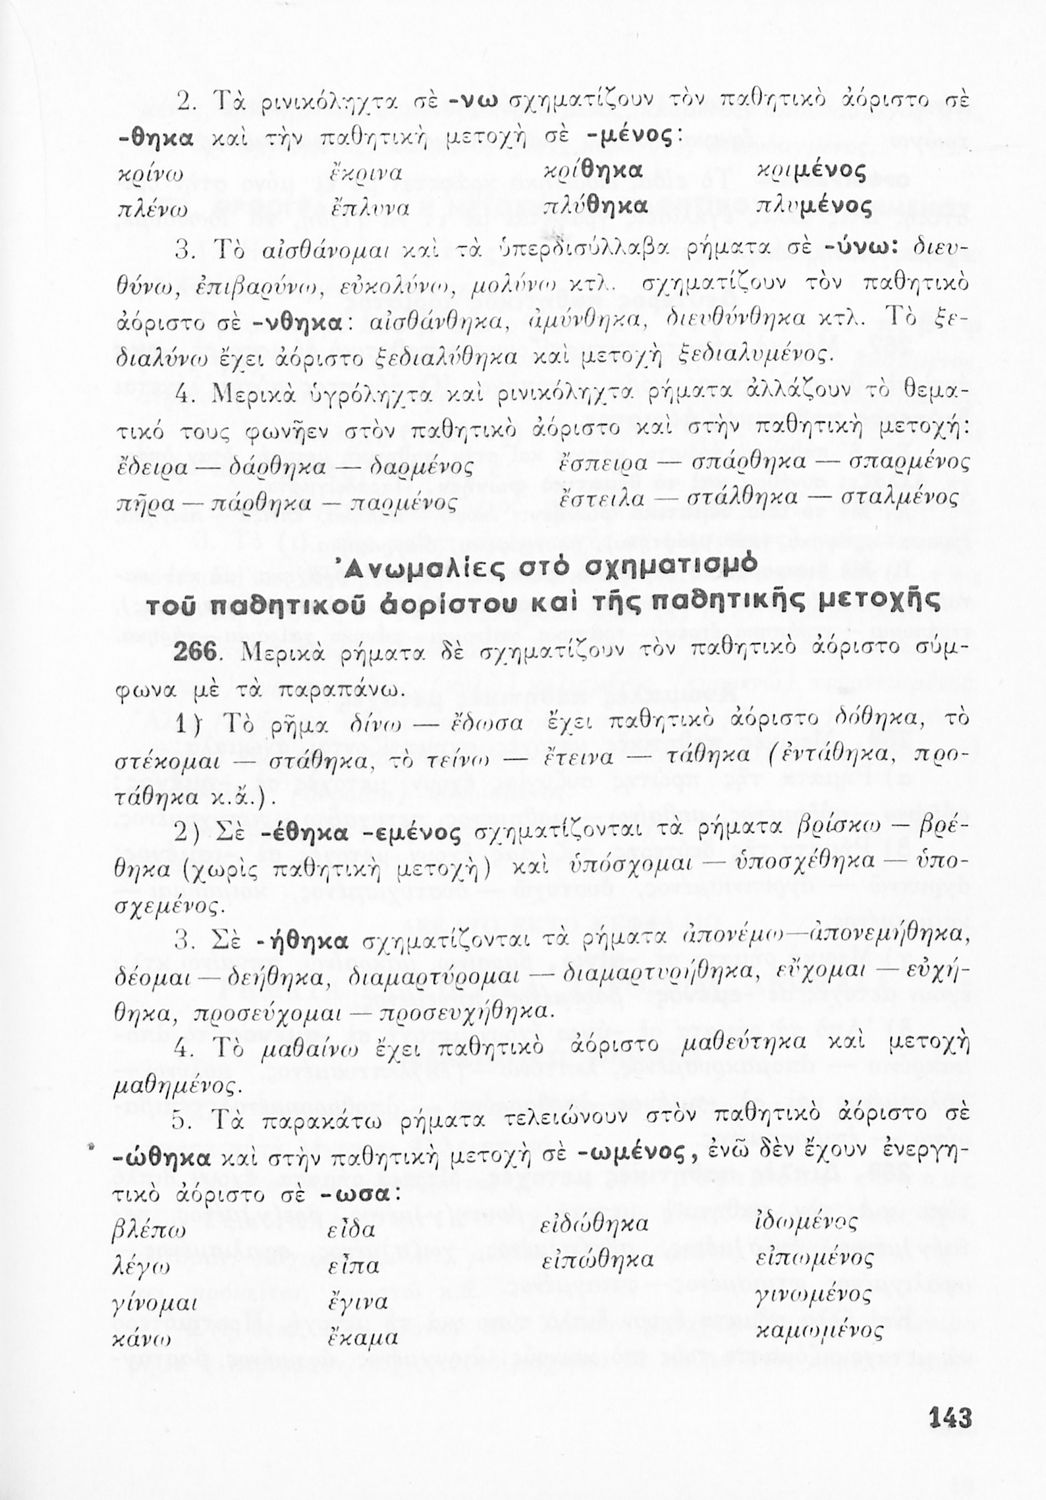 2. Τὰ ρινικόληχτα σὲ -νω σχηματίζουν τὸν παθητικὸ ἀόριστο σὲ
-θηκα καὶ τὴν παθητικὴ μετοχὴ σὲ -μένος:
κρίνω ἔκρινα κρίθηκα κριμένος
πλένω ἔπλυνα πλύθηκα πλυμένος
3. Τὸ αἰσθάνομαι καὶ τὰ ὑπερδισύλλαβα ρήματα σὲ -ύνω: διευ-
θύνω, ἐπιβαρύνω, εὐκολύνω, μολύνω κτλ. σχηματίζουν τὸν παθητικὸ
ἀόριστο σὲ -νθηκα: αἰσθάνθηκα, ἀμύνθηκα, διευθύνθηκα κτλ. Τὸ ξε-
διαλύνω ἔχει ἀόριστο ξεδιαλύθηκα καὶ μετοχὴ ξεδιαλυμένος.
4. Μερικὰ ὑγρόληχτα καὶ ρινικόληχτα ρήματα ἀλλάζουν τὸ θεμα-
τικό τους φωνῆεν στὸν παθητικὸ ἀόριστο καὶ στὴν παθητικὴ μετοχή:
ἔδειρα — δάρθηκα — δαρμένος ἔσπειρα — σπάρθηκα — σπαρμένος
πῆρα — πάρθηκα — παρμένος ἔστειλα — στάλθηκα — σταλμένος
Ἀνωμαλίες στὸ σχηματισμὸ
τοῦ παθητικοῦ ἀορίστου καὶ τῆς παθητικῆς μετοχῆς
266. Μερικὰ ρήματα δὲ σχηματίζουν τὸν παθητικὸ ἀόριστο σύμ-
φωνα μὲ τὰ παραπάνω.
1) Τὸ ρῆμα δίνω — ἔδωσα ἔχει παθητικὸ ἀόριστο δόθηκα, τὸ
στέκομαι — στάθηκα, τὸ τείνω — ἔτεινα — τάθηκα (ἐντάθηκα, προ-
τάθηκα κ.ἄ.).
2) Σὲ -έθηκα -εμένος σχηματίζονται τὰ ρήματα βρίσκω — βρέ-
θηκα (χωρὶς παθητικὴ μετοχὴ) καὶ ὑπόσχομαι — ὑποσχέθηκα — ὑπο-
σχεμένος.
3. Σὲ -ήθηκα σχηματίζονται τὰ ρήματα ἀπονέμω—ἀπονεμήθηκα,
δέομαι — δεήθηκα, διαμαρτύρομαι — διαμαρτυρήθηκα, εὔχομαι — εὐχή-
θηκα, προσεύχομαι — προσευχήθηκα.
4. Τὸ μαθαίνω ἔχει παθητικὸ ἀόριστο μαθεύτηκα καὶ μετοχὴ
μαθημένος.
5. Τὰ παρακάτω ρήματα τελειώνουν στὸν παθητικὸ ἀόριστο σὲ
-ώθηκα καὶ στὴν παθητικὴ μετοχὴ σὲ -ωμένος, ἐνῶ δὲν ἔχουν ἐνεργη-
τικὸ ἀόριστο σὲ -ωσα:
βλέπω εἶδα εἰδώθηκα ἰδωμένος
λέγω εἶπα εἰπώθηκα εἰπωμένος
γίνομαι ἔγινα γινωμένος
κάνω ἔκαμα καμωμένος
143